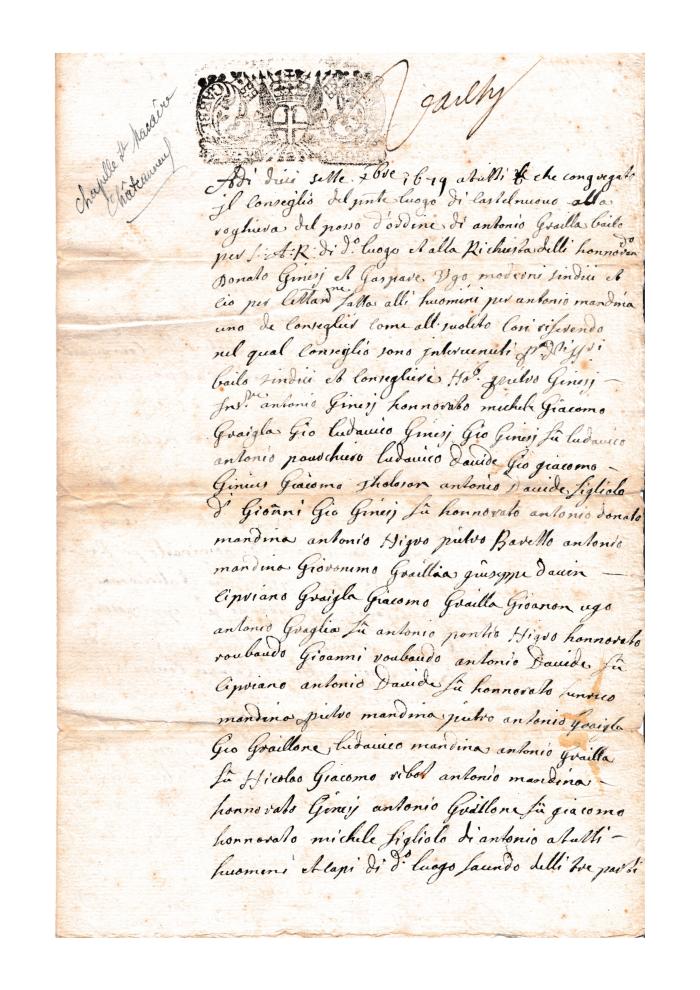 Chapelle St Macaire
Châteauneuf
Adi dieci sette 7bre 1649 a tutti che congregato
jl conseglio del pnte luogo di castelnuovo alla
roghiera del posso d'ordine di antonio Grailla bailo
per S: A: R: di d.o luogo et alla Richiesta delli honnoran
Donato Ginesj et Gaspare Ugo moderni sindici et
cio per fatta alli huomini per antonio mandina
uno de conseglier come all suolito Cosi riferendo
nel qual Conseglio sono jntervenuti
bailo sindici et conseglieri pietro Ginesj
antonio Ginesj honnorato michele Giacomo
Graigla Gio ludavico Ginesj Gio Ginesj fu ludavico
antonio ludavico Davide Gio giacomo
Ginies Giacomo antonio Davide figliolo
d' Gioanni Gio Ginesj fu honnorato antonio donato
mandina antonio Nigro pietro Baretto antonio
mandina Gieronimo Graillia giuseppe
Cipriano Graigla Giacomo Grailla Gioanon ugo
antonio Graglia fu antonio pontio Nigro honnorato
roubaudo Gioanni roubaudo antonio Davide fu
Cipriano antonio Davide fu honnorato
mandina pietro mandina pietro antonio Graigla
Gio Graillone ludavico mandina antonio grailla
fu Nicolao Giacomo ribot antonio mandina
honnorato Ginesj antonio Graillone fu giacomo
honnorato michele figliolo di antonio a tutti
huomeni et capi di d.o luogo facendo delli tre parti